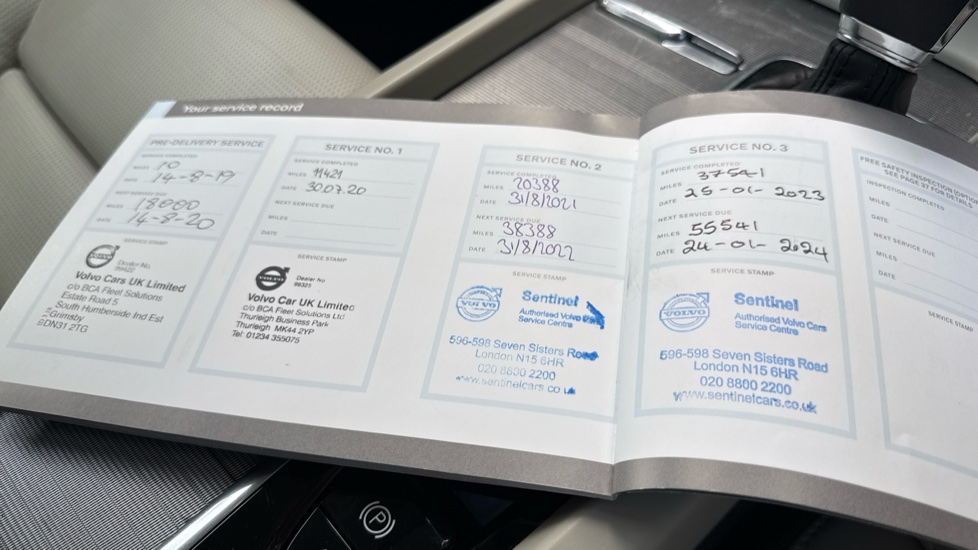 Your service record
PRE-DELIVERY SERVICE
SERVICE COMPLETED
MILES 10
DATE 14-8-19
NEXT SERVICE DUE
MILES 18000
DATE 14-8-20
SERVICE STAMP
VOLVO
Dealer No.
Volvo Cars UK Limited
c/o BCA Fleet Solutions
Estate Road 5
South Humberside Ind Est
Grimsby
DN31 2TG
SERVICE NO. 1
SERVICE COMPLETED
MILES 11429
DATE 30.07.20
NEXT SERVICE DUE
MILES
DATE
SERVICE STAMP
VOLVO
Dealer No
Volvo Car UK Limited
c/o BCA Fleet Solutions Ltd
Thurleigh Business Park
Thurleigh MK44 2YP
Tel: 01234 355075
SERVICE NO. 2
SERVICE COMPLETED
MILES 20388
DATE 31/8/2021
NEXT SERVICE DUE
MILES 38388
DATE 31/8/2022
SERVICE STAMP
VOLVO
Sentinel
Authorised Volvo
Service Centre
596-598 Seven Sisters Road
London N15 6HR
020 8800 2200
www.sentinelcars.co.uk
SERVICE NO. 3
SERVICE COMPLETED
MILES 37541
DATE 25-01-2023
NEXT SERVICE DUE
MILES 55541
DATE 24-01-2024
SERVICE STAMP
VOLVO
Sentinel
Authorised Volvo Cars
Service Centre
596-598 Seven Sisters Road
London N15 6HR
020 8800 2200
www.sentinelcars.co.uk
FREE SAFETY INSPECTION (OPTION
SEE PAGE 27 FOR DETAILS
INSPECTION COMPLETED
MILES
DATE
NEXT SERVICE DUE
MILES
DATE
SERVICE STAMP
P